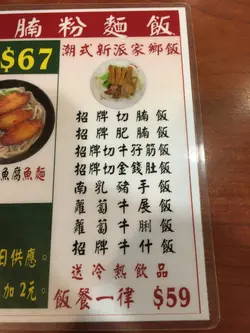 腩粉麵飯
$67
潮式新派家鄉飯
招牌切腩飯
招牌肥腩飯
招牌切牛孖筋飯
招牌切金錢肚飯
南乳豬手飯
蘿蔔牛展飯
蘿蔔牛脷飯
招牌牛什飯
魚腐魚麵
日供應。
加2元。
送冷熱飲品
飯餐一律 $59